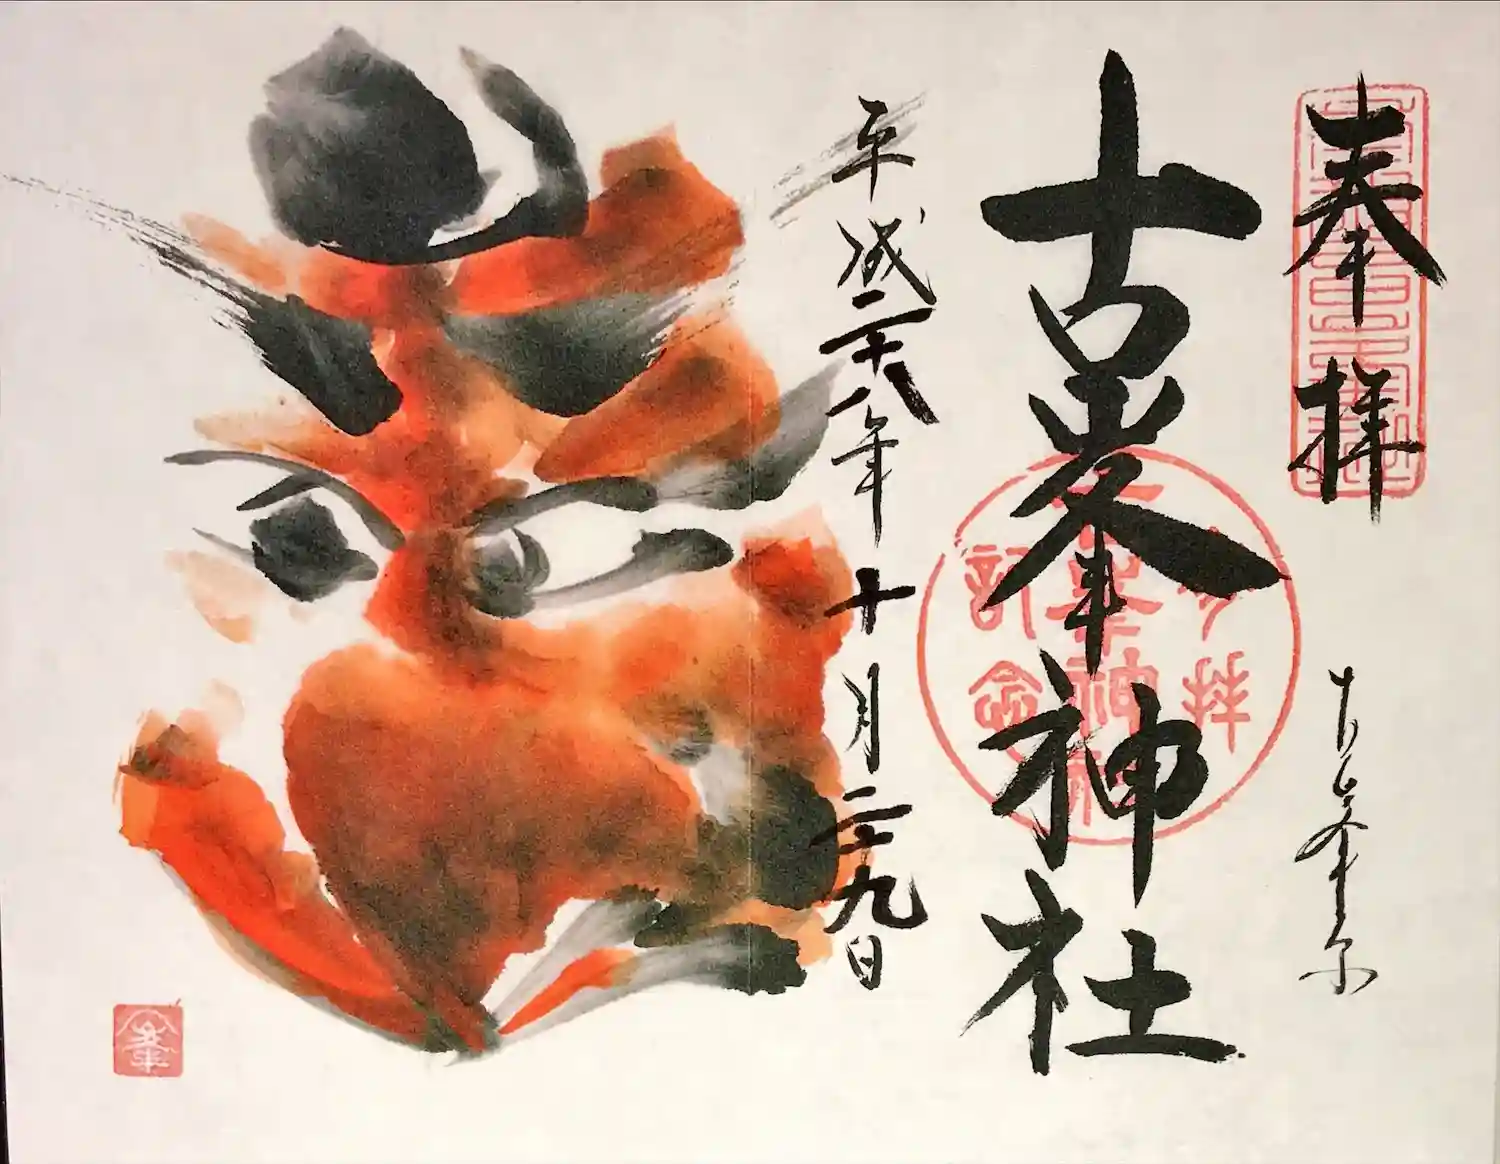 奉拝
古峯神社
参拝
記念
平成二十八年十月二十九日
峯